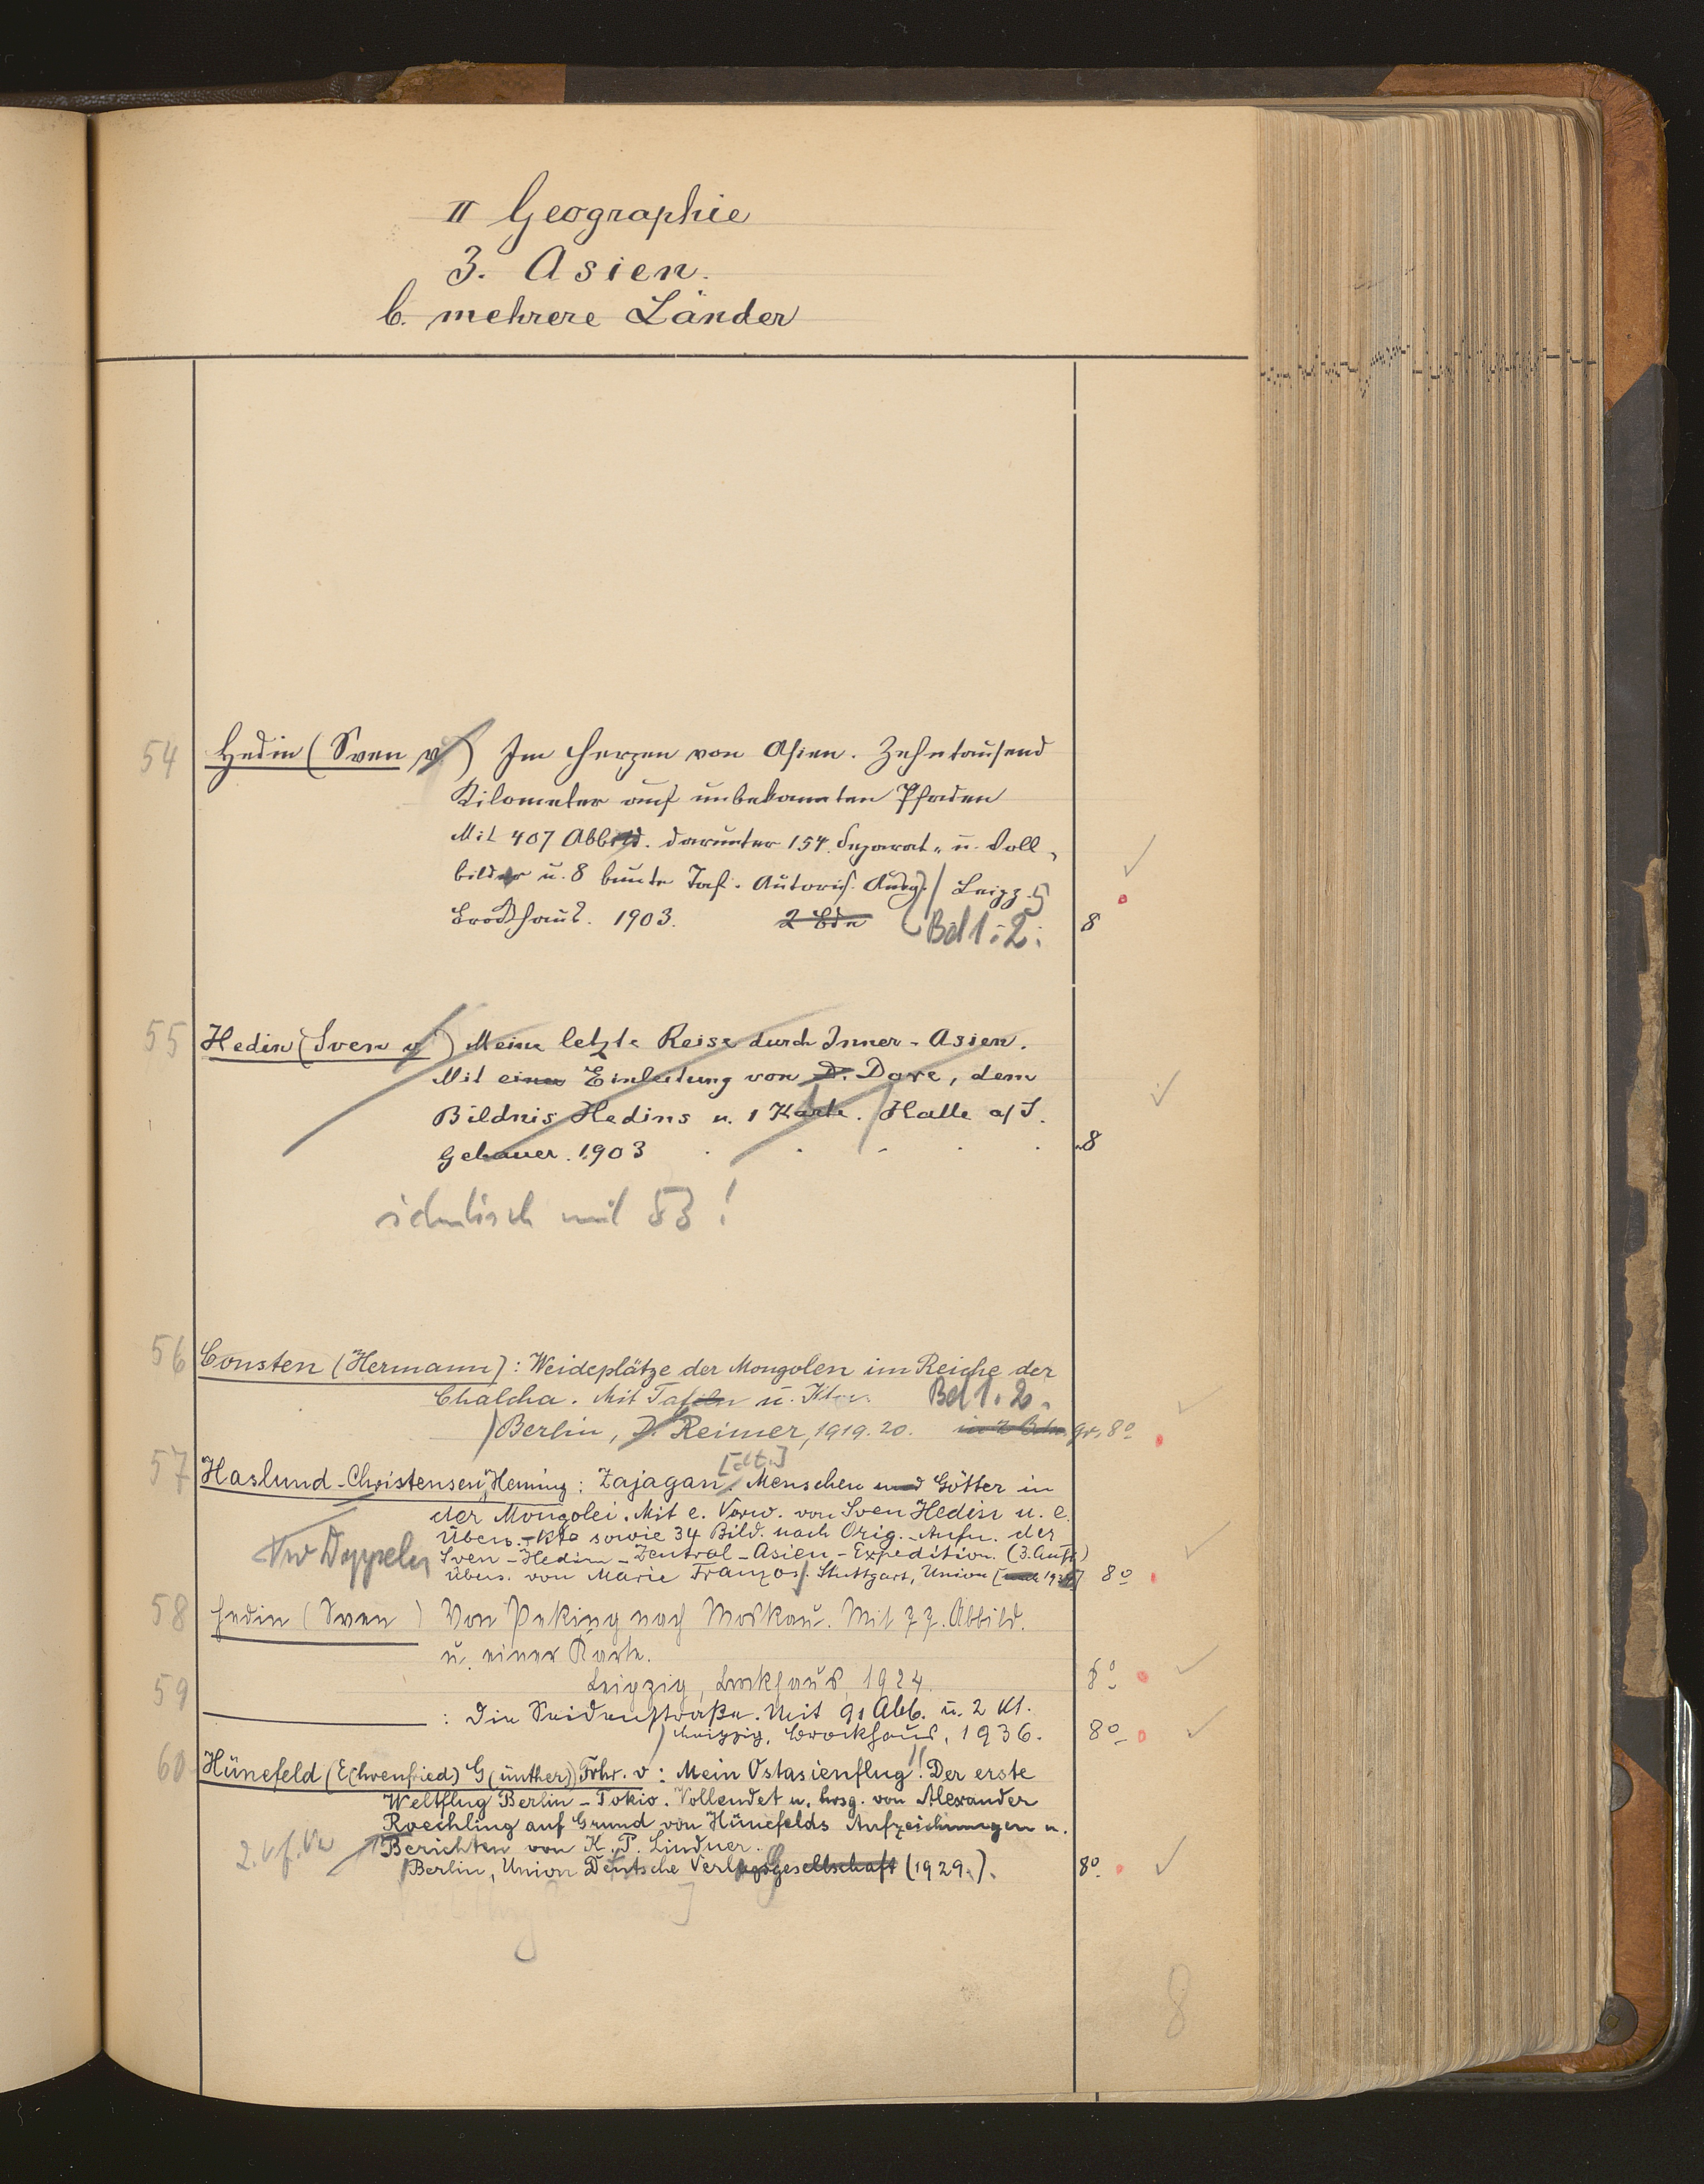 II Geographie
3. Asien.
b. mehrere Länder
54 Hedin (Sven v.) Im Herzen von Asien. Zehntausend
Kilometer auf unbekannten Pfaden
Mit 407 Abbild. darunter 154 Separat- u. Voll-
bilder u. 8 bunte Taf. Autoris. Ausg. / Leipz.
Brockhaus. 1903. 2 Bde Bd 1. 2. 8
55 Hedin (Sven v.) Meine letzte Reise durch Inner-Asien.
Mit einer Einleitung von D. Dove, dem
Bildnis Hedins u. 1 Karte. / Halle a/S.
Gebauer. 1903 8
identisch mit 53!
56 Consten (Hermann): Weideplätze der Mongolen im Reiche der
Chalcha. Mit Tafeln u. Ktn. Bd 1. 2.
/ Berlin, D. Reimer, 1919. 20. in 2 Bdn. gr. 8°
57 Haslund-Christensen, Henning: Zajagan [dt.]. Menschen und Götter in
der Mongolei. Mit e. Vorw. von Sven Hedin u. e.
Übers.-Kte sowie 34 Bild. nach Orig.-Aufn. der
Sven-Hedin-Zentral-Asien-Expedition. (3. Aufl.)
Übers. von Marie Franzos /. Stuttgart, Union 8°
58 Hedin (Sven) Von Peking nach Moskau. Mit 77. Abbild.
u. einer Karte.
Leipzig, Brockhaus, 1924. 8°
59 : Die Seidenstraße. Mit 91 Abb. u. 2 Kt.
/ Leipzig, Brockhaus, 1936. 8°
60 Hünefeld (E(hrenfried) G(ünther)) Frhr. v: Mein Ostasienflug! Der erste
Weltflug Berlin-Tokio. Vollendet u. hrsg. von Alexander
Roechling auf Grund von Hünefelds Aufzeichnungen u.
Berichten von K. P. Lindner.
/ Berlin, Union Deutsche Verlagsgesellschaft (1929.). 8°
8